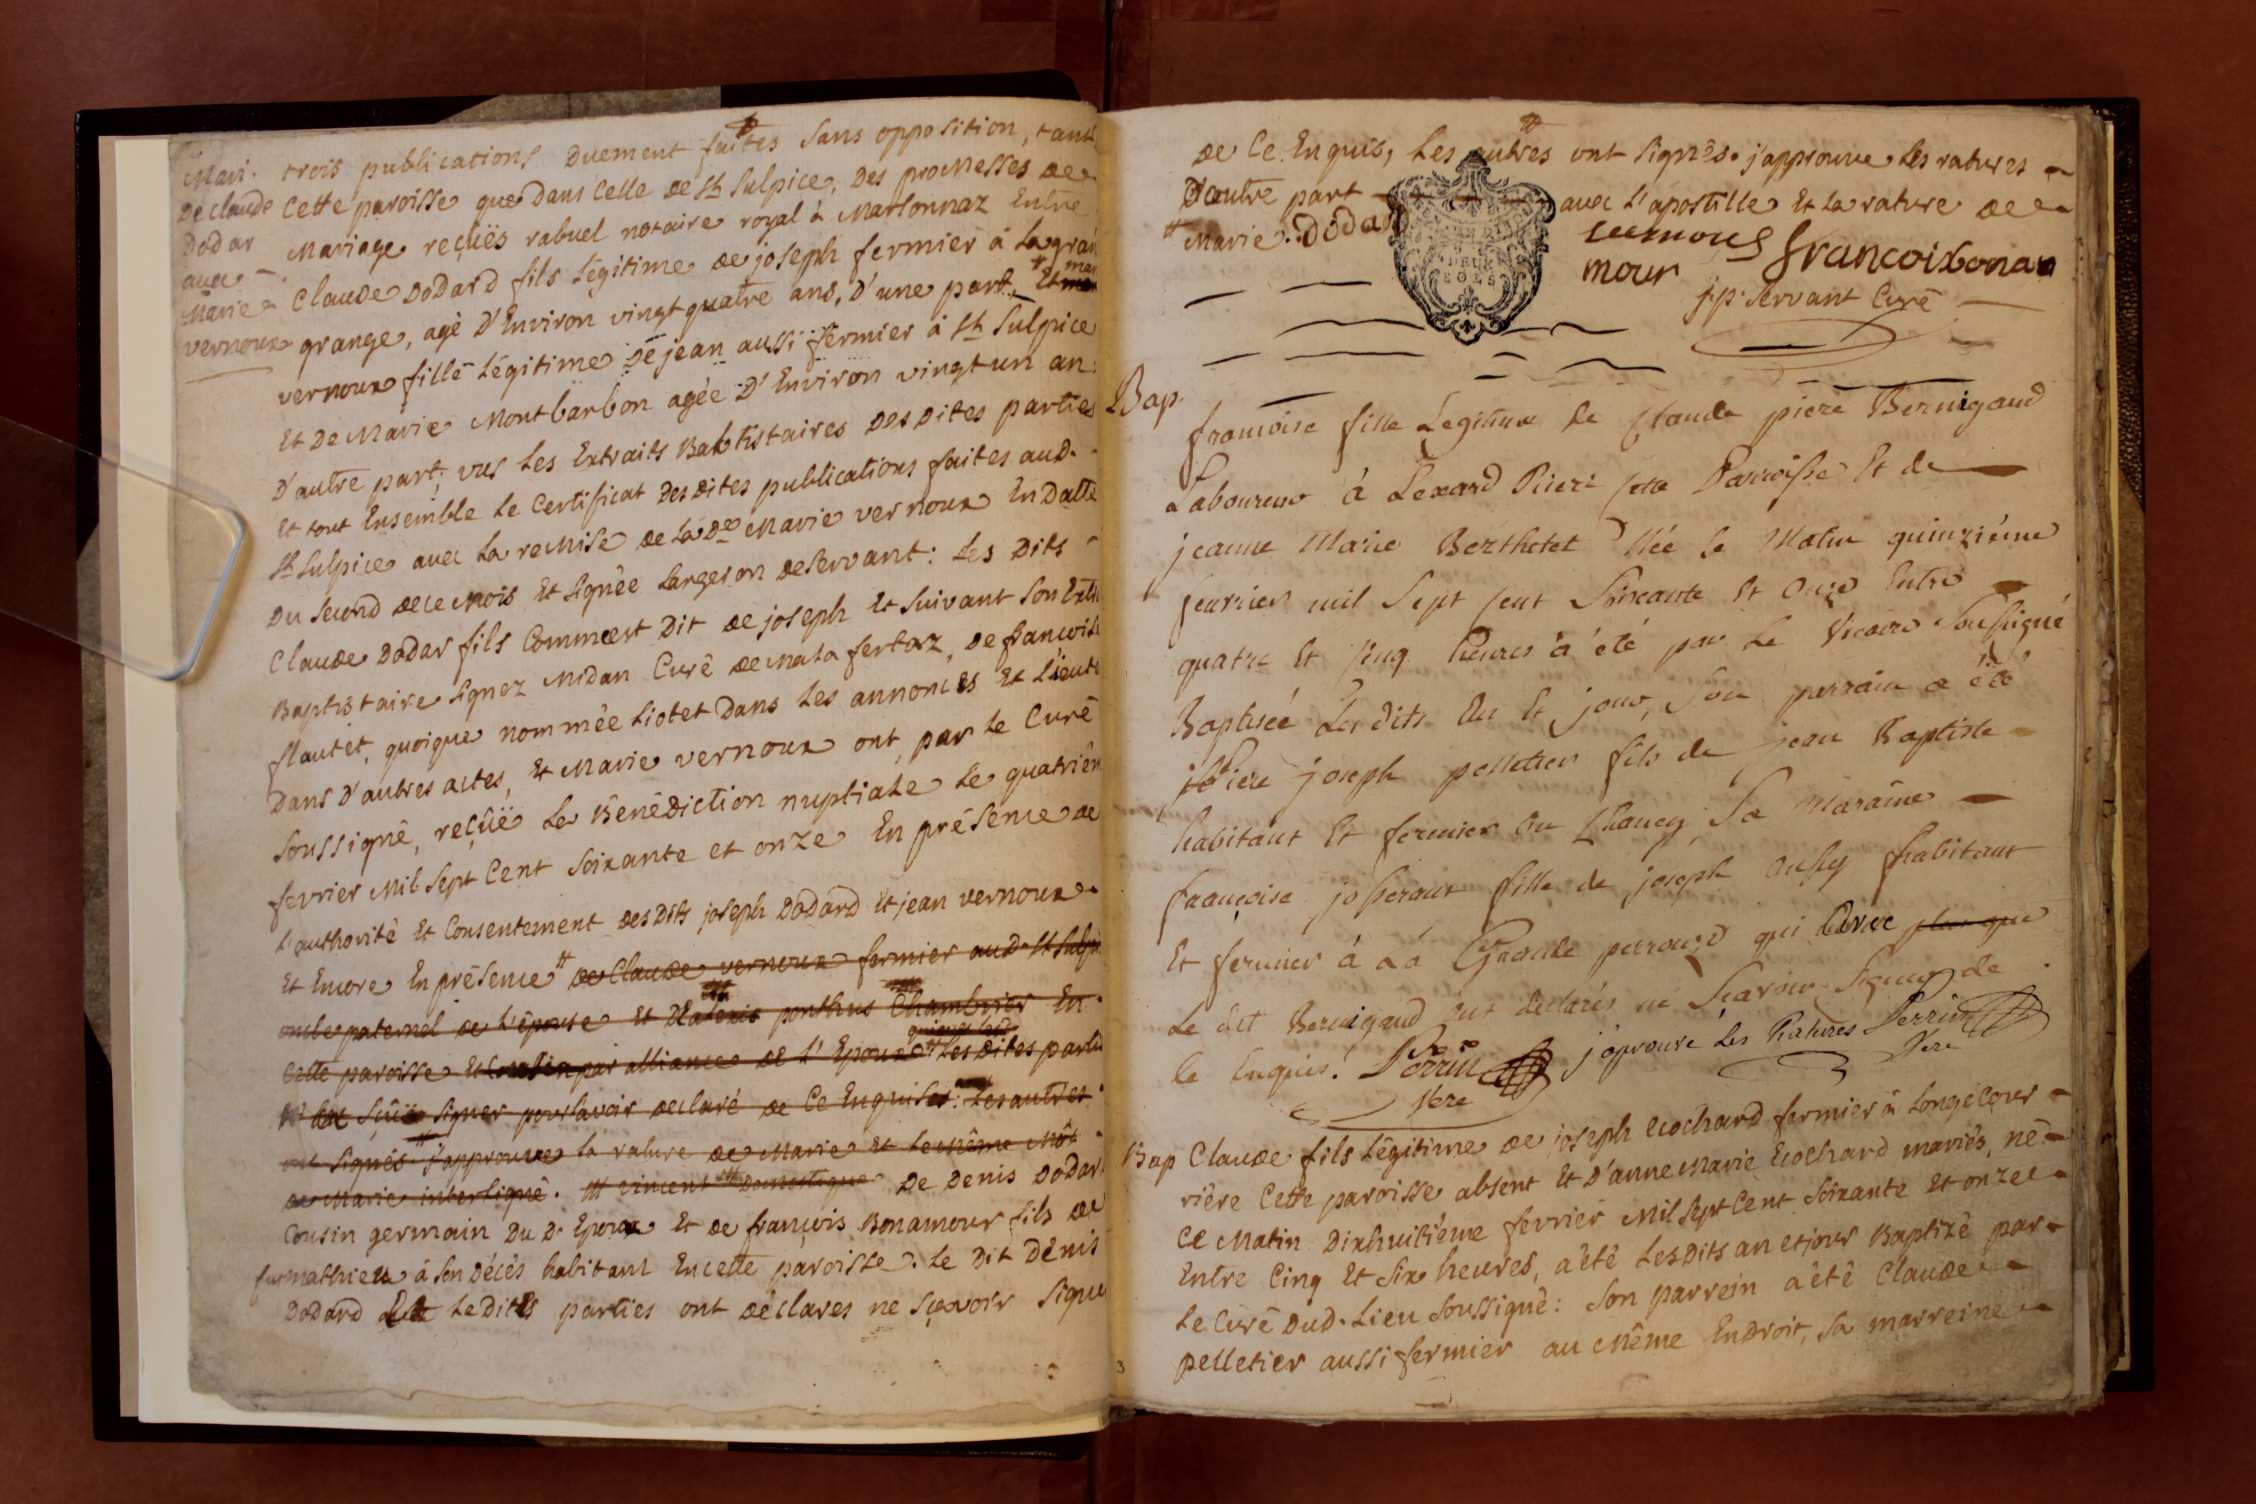 Mari.
De claude
Dodar
avec
Marie
vernoux
trois publications Duement faites sans opposition, tant
cette paroisse que dans celle de St Sulpice, des promesses de
Mariage reçuës rabuel notaire royal à Marsonnaz Entre
claude Dodard fils légitime de joseph fermier à la gran
grange, agé D'Environ vingt quatre ans, D'une part, Et
vernoux fille légitime de jean aussi fermier à St Sulpice
Et De Marie Montbarbon agée D'Environ vingt un an
D'autre part; vus les Extraits Babtistaires Des Dites parties
Et tout Ensemble le certificat des dites publications faites aud.
St Sulpice avec la remise de la De Marie vernoux En Datte
Du second de ce mois Et signée deservant: Les Dits
claude Dodar fils comme est Dit de joseph Et suivant son Ext
Baptistaire signez Midan curé de Malafertaz, De francoise
flautet, quoique nommée Liotet Dans les annonces Et
Dans D'autres actes, Et Marie vernoux ont, par le curé
soussigné, reçûë la Bénédiction nuptiale le quatriém
fevrier Mil sept cent soixante et onze En présence de
L'authorité Et consentement des Dits joseph Dodard Et jean vernoux
Et Encore En présence de Claude vernoux fermier aud. St Sulpi
oncle paternel de l'épouse Et ponthus Chambrier En
cette paroisse Et cousin par alliance de l'Epoux Les Dites parti
signer pour l'avoir declaré de ce Enquises: Les autres
ont signés. j'approuve la rature de Marie et le même Môt
de Marie interligné. vincent Domestique De Denis Dodar
cousin germain Du D. Epoux Et de françois Bonamour fils de
mathieu à son décés habitant En cette paroisse. Le Dit Denis
Dodard Le Dites parties ont déclarés ne sçavoir signe
de ce Enquis, Les autres ont signés. j'approuve les ratures
D'autre part avec l'apostille Et la rature de
Marie. Dodar
francoixbona
mour
jp. servant Curé
Bap.
francoise fille Legitime de Claude piere Bernigaud
Laboureur à Lexard Piere cette Parroisse Et de
jeanne Marie Berthelet Née le Matin quinziéme
feurier mil sept cent Soixante Et Onze Entre
quatre Et cinq heures a été par Le Vicaire Soussigné
Baptisée Les dits An Et jour, Son parrain a été
piere joseph pelletier fils de jean Baptiste
habitant Et fermier Au Chaney, Sa Maraine
françoise josserant fille de joseph Aussy habitant
Et fermier à La Grande qui avec plus que
Le dit Bernigaud ont declarés ne Scavoir Signer de
Ce Enquis. Perrin j'aprouve Les Ratures Perrin
Vere Vere
Bap
Claude fils légitime de joseph Ecochard fermier à Longecour
riére cette paroisse absent Et D'anne Marie Ecochard mariés, né
ce Matin Dixhuitiéme fevrier Mil sept cent soixante Et onze
Entre Cinq Et six heures, a été les Dits an et jour Baptizé par
le Curé Dud. Lieu soussigné: son parrein a été Claude
pelletier aussi fermier au Même Endroit, sa marreine